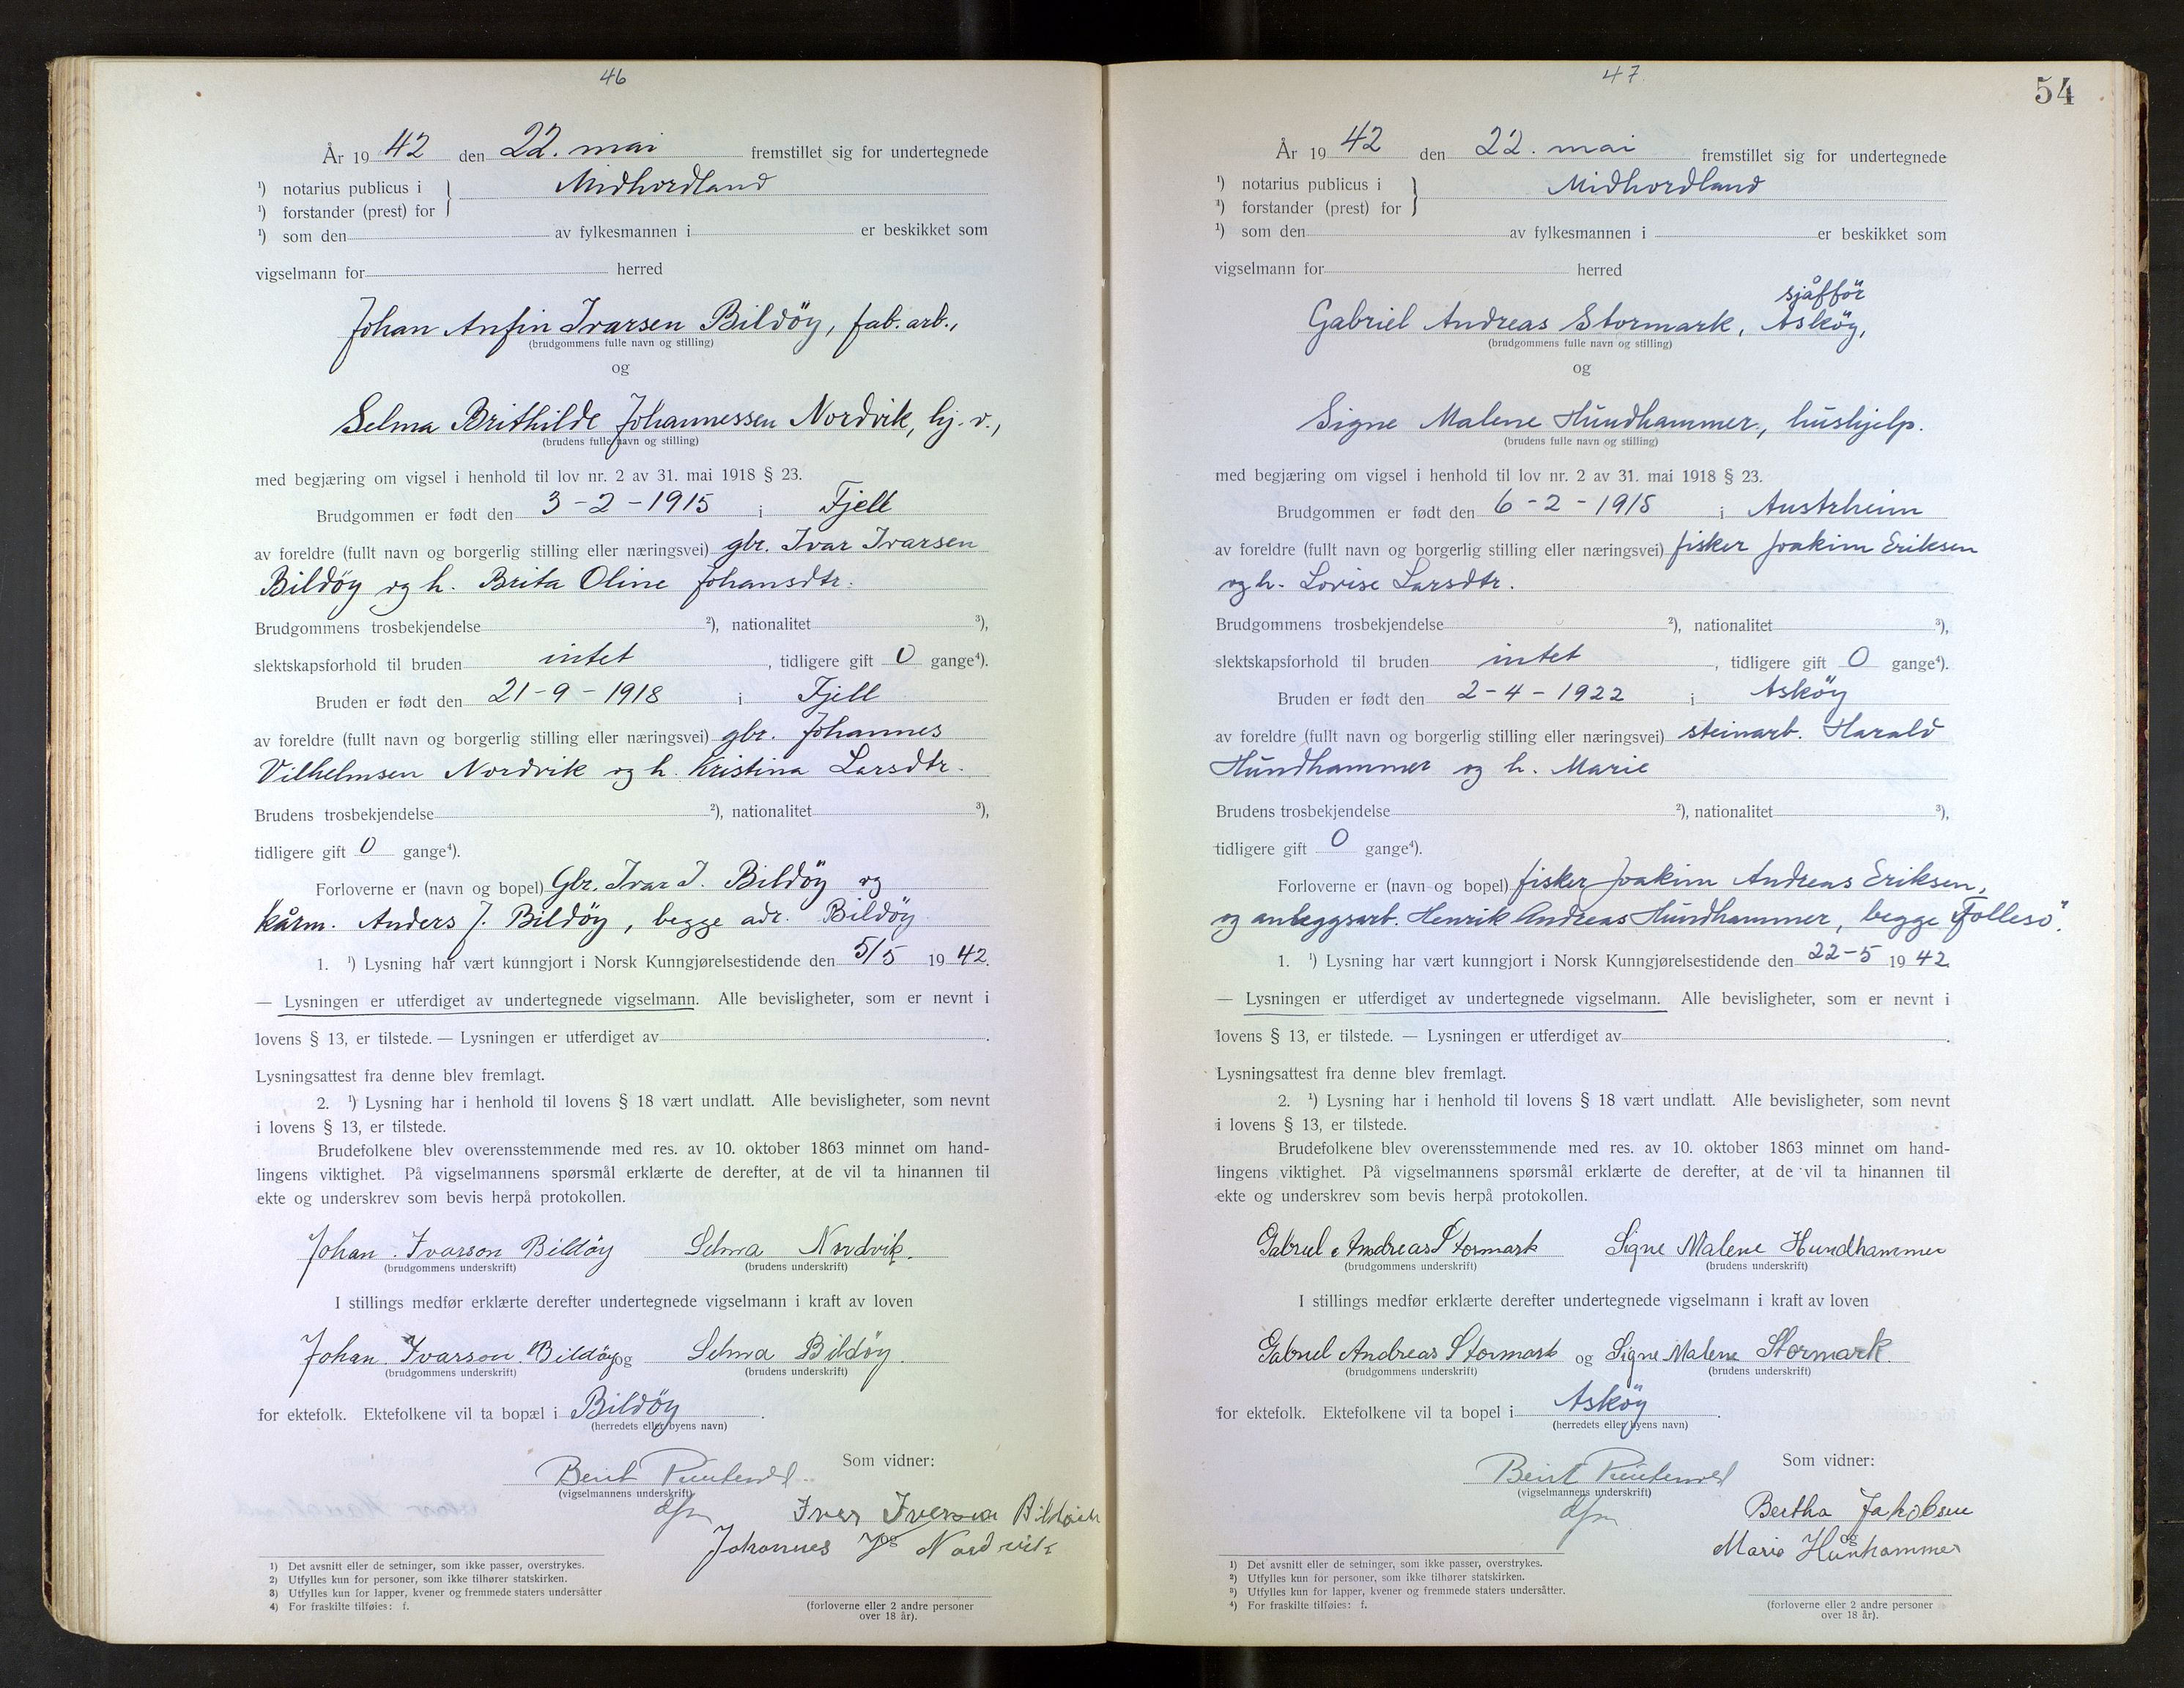 46
År 1942 den 22. mai fremstillet sig for undertegnede
¹) notarius publicus i } Midhordland
¹) forstander (prest) for
¹) som den av fylkesmannen i er beskikket som
vigselmann for herred
Johan Anfin Ivarsen Bildöy, fab. arb.,
(brudgommens fulle navn og stilling)
og
Selma Brithilde Johannessen Nordvik, hj. v.,
(brudens fulle navn og stilling)
med begjæring om vigsel i henhold til lov nr. 2 av 31. mai 1918 § 23.
Brudgommen er født den 3-2-1915 i Fjell
av foreldre (fullt navn og borgerlig stilling eller næringsvei) gbr. Ivar Ivarsen
Bildöy og h. Brita Oline Johansdtr.
Brudgommens trosbekjendelse ²), nationalitet ³),
slektskapsforhold til bruden intet, tidligere gift 0 gange⁴).
Bruden er født den 21-9-1918 i Fjell
av foreldre (fullt navn og borgerlig stilling eller næringsvei) gbr. Johannes
Vilhelmsen Nordvik og h. Kristina Larsdtr.
Brudens trosbekjendelse ²), nationalitet ³),
tidligere gift 0 gange⁴).
Forloverne er (navn og bopel) Gbr. Ivar I. Bildöy og
kårm. Anders J. Bildöy, begge adr. Bildöy
1. ¹) Lysning har vært kunngjort i Norsk Kunngjørelsestidende den 5/5 1942.
— Lysningen er utferdiget av undertegnede vigselmann. Alle bevisligheter, som er nevnt i
lovens § 13, er tilstede. — Lysningen er utferdiget av .
Lysningsattest fra denne blev fremlagt.
2. ¹) Lysning har i henhold til lovens § 18 vært undlatt. Alle bevisligheter, som nevnt
i lovens § 13, er tilstede.
Brudefolkene blev overensstemmende med res. av 10. oktober 1863 minnet om hand-
lingens viktighet. På vigselmannens spørsmål erklærte de derefter, at de vil ta hinannen til
ekte og underskrev som bevis herpå protokollen.
Johan. Ivarson Bildöy Selma Nordvik.
(brudgommens underskrift) (brudens underskrift)
I stillings medfør erklærte derefter undertegnede vigselmann i kraft av loven
Johan. Ivarson. Bildöy og Selma Bildöy.
(brudgommens underskrift) (brudens underskrift)
for ektefolk. Ektefolkene vil ta bopæl i Bildöy.
(herredets eller byens navn)
Som vidner:
Berit
(vigselmannens underskrift)
dfm
Iver Iverson
og
Johannes Nordvik
¹) Det avsnitt eller de setninger, som ikke passer, overstrykes.
²) Utfylles kun for personer, som ikke tilhører statskirken.
³) Utfylles kun for lapper, kvener og fremmede staters undersåtter
⁴) For fraskilte tilføies: f.
(forloverne eller 2 andre personer
over 18 år).
47.
54
År 1942 den 22. mai fremstillet sig for undertegnede
¹) notarius publicus i } Midhordland
¹) forstander (prest) for
¹) som den av fylkesmannen i er beskikket som
vigselmann for herred
sjåfför
Gabriel Andreas Stormark, Asköy,
(brudgommens fulle navn og stilling)
og
Signe Malene Hundhammer, hushjelp.
(brudens fulle navn og stilling)
med begjæring om vigsel i henhold til lov nr. 2 av 31. mai 1918 § 23.
Brudgommen er født den 6-2-1915 i Austrheim
av foreldre (fullt navn og borgerlig stilling eller næringsvei) fisker Joakim Eriksen
og h. Lovise Larsdtr.
Brudgommens trosbekjendelse ²), nationalitet ³),
slektskapsforhold til bruden intet, tidligere gift 0 gange⁴).
Bruden er født den 2-4-1922 i Asköy
av foreldre (fullt navn og borgerlig stilling eller næringsvei) steinarb. Harald
Hundhammer og h. Marie
Brudens trosbekjendelse ²), nationalitet ³),
tidligere gift 0 gange⁴).
Forloverne er (navn og bopel) fisker Joakim Andreas Eriksen,
og anleggsarb. Henrik Andreas Hundhammer, begge Follesö.
1. ¹) Lysning har vært kunngjort i Norsk Kunngjørelsestidende den 22-5 1942.
— Lysningen er utferdiget av undertegnede vigselmann. Alle bevisligheter, som er nevnt i
lovens § 13, er tilstede. — Lysningen er utferdiget av .
Lysningsattest fra denne blev fremlagt.
2. ¹) Lysning har i henhold til lovens § 18 vært undlatt. Alle bevisligheter, som nevnt
i lovens § 13, er tilstede.
Brudefolkene blev overensstemmende med res. av 10. oktober 1863 minnet om hand-
lingens viktighet. På vigselmannens spørsmål erklærte de derefter, at de vil ta hinannen til
ekte og underskrev som bevis herpå protokollen.
Gabriel Andreas Stormark Signe Malene Hundhammer
(brudgommens underskrift) (brudens underskrift)
I stillings medfør erklærte derefter undertegnede vigselmann i kraft av loven
Gabriel Andreas Stormark og Signe Malene Stormark.
(brudgommens underskrift) (brudens underskrift)
for ektefolk. Ektefolkene vil ta bopel i Asköy.
(herredets eller byens navn)
Som vidner:
Berit
(vigselmannens underskrift)
dfm
Bertha Jakobsen
og
Marie Hunhammer
¹) Det avsnitt eller de setninger, som ikke passer, overstrykes.
²) Utfylles kun for personer, som ikke tilhører statskirken.
³) Utfylles kun for lapper, kvener og fremmede staters undersåtter.
⁴) For fraskilte tilføies: f.
(forloverne eller 2 andre personer
over 18 år).